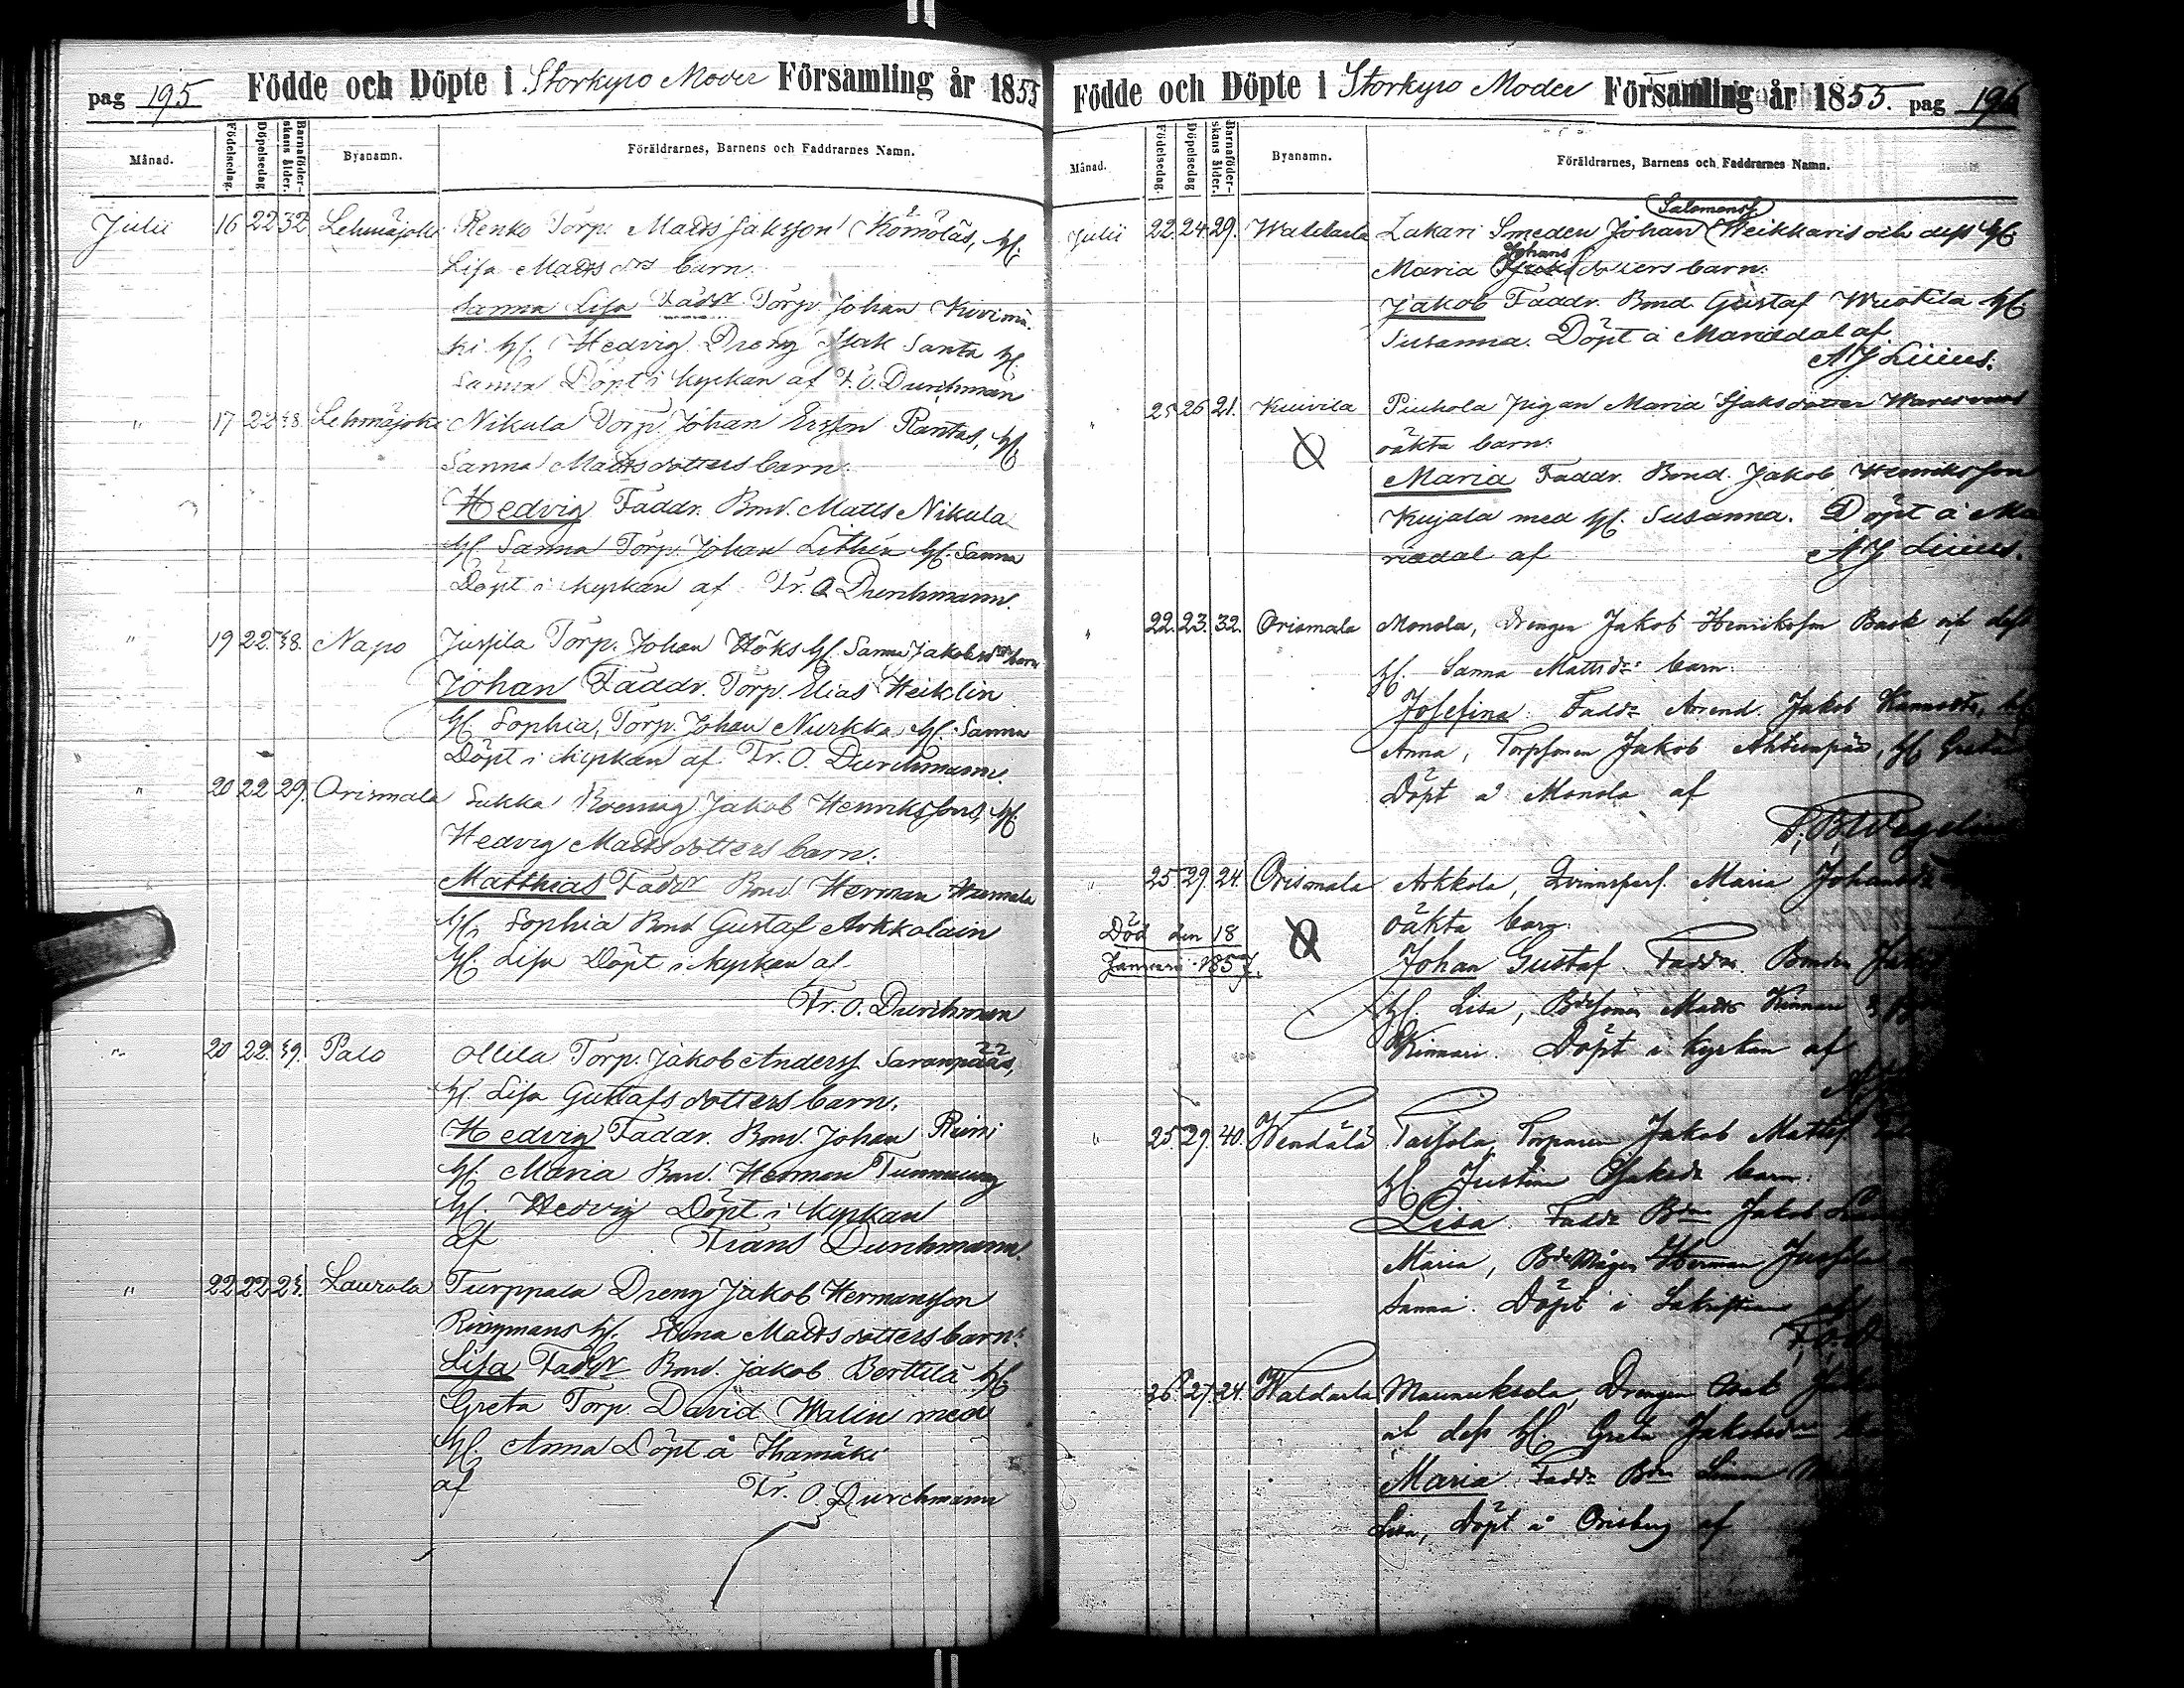 pag 195 Födde och Döpte i Storkyro Moder Församling år 1855
Månad. Födelsedag. Döpelsedag Barnaföderskans ålder. Byanamn. Föräldrarnes, Barnens och Faddrarnes Namn.
Julii 16 22 32 Lehmäjoki Renko Torp. Matts Jaksson Kömöläs, hf.
Lisa Matts drs barn.
Sanna Lisa Faddr Torp. Johan Kivimä-
ki hf. Hedvig. Dreng Isak Santa hf.
Sanna Döpt i kyrkan af F. O. Durchman
" 17 22 Lehmäjoki Nikula Torp. Johan Ersson Rantas, hf.
Sanna Mattsdotters barn.
Hedvig Faddr. Bond. Matts Nikula
hf. Sanna Torp. Johan Lithén hf. Sanna
Döpt i kyrkan af Fr. O. Durchmann.
" 19 22 Napo Jussila Torp. Johan Höks hf. Sanna Jakobsd barn
Johan Faddr. Torp. Elias Heiklin
hf. Sophia, Torp. Johan Nurkka hf. Sanna
Döpt i kyrkan af Fr. O. Durchmann.
" 20 22 29. Orismala Sukka Jakob Henrikssons, hf.
Hedvig Mattsdotters barn.
Matthias Faddr Bond Herman
hf. Sophia Bond Gustaf Arkkolain
hf. Lisa Döpt i kyrkan af
Fr. O. Durchman
" 20 22. Palo Ollila Torp. Jakob Anderss. Saranpääs,
hf. Lisa Gustafsdotters barn.
Hedvig Faddr. Bond. Johan Rumi
hf. Maria Bond. Herman
hf. Hedvig Döpt i kyrkan
af Frans Durchmann.
" 22 22 Laurola Turppala Dreng Jakob Hermansson
Ringmans hf. Stina Mattsdotters barn.
Lisa Faddr Bond. Jakob Berttilä hf.
Greta Torp. David Walin med
hf. Anna Döpt å Ihamäki
af Fr. O. Durchmann
Födde och Döpte i Storkyro Moder Församling år 1855. pag 196
Månad. Födelsedag. Döpelsedag Barnaföderskans ålder. Byanamn. Föräldrarnes, Barnens och Faddrarnes Namn.
Salomonss.
Julii 22. 24. 29. Waldarla Lakari Smeden Johan Weikkaris och dess hf.
Johans
Maria dotters barn.
Jakob Faddr. Bond. Gustaf Wuotila hf.
Susanna. Döpt å Mariedal af
A J Liiius.
" 25 26 21. Kuivila Piukola Pigan Maria Isaksdotter
oäkta barn.
Maria Faddr. Bond. Jakob Henriksson
Kujala med hf. Susanna. Döpt å Ma
riedal af A J Liiius.
" 22. 23. 32. Orismala Monola, Drengen Jakob Henrikson Back och dess
hf. Sanna Mattsdr barn.
Josefina. Faddr Arrend. Jakob
Anna, Torpsonen Jakob hf Greta
Döpt å Monola af
" 25 29. 24. Orismala Arkkola, Qvinspers. Maria Johansdr
oäkta barn.
Död den 18
Januari 1857.
Johan Gustaf. Faddr. Bonden
hf. Lisa, Bdsonen Matts
Kinnari. Döpt i kyrkan af
" 25. 29. 40. Wendälä Tassola, Torparen Jakob Mattss.
hf. Justina Isaksdr barn.
Lisa. Faddr Bden Jakob
Maria, Bdemågen Herman Jussila
Sanna. Döpt i Sakristian af
26. 27. 24. Waldarla Maunuksela, Drengen
och dess hf. Greta Jakobsdr
Maria. Faddr Bdn
Lisa, Döpt å Orisberg af